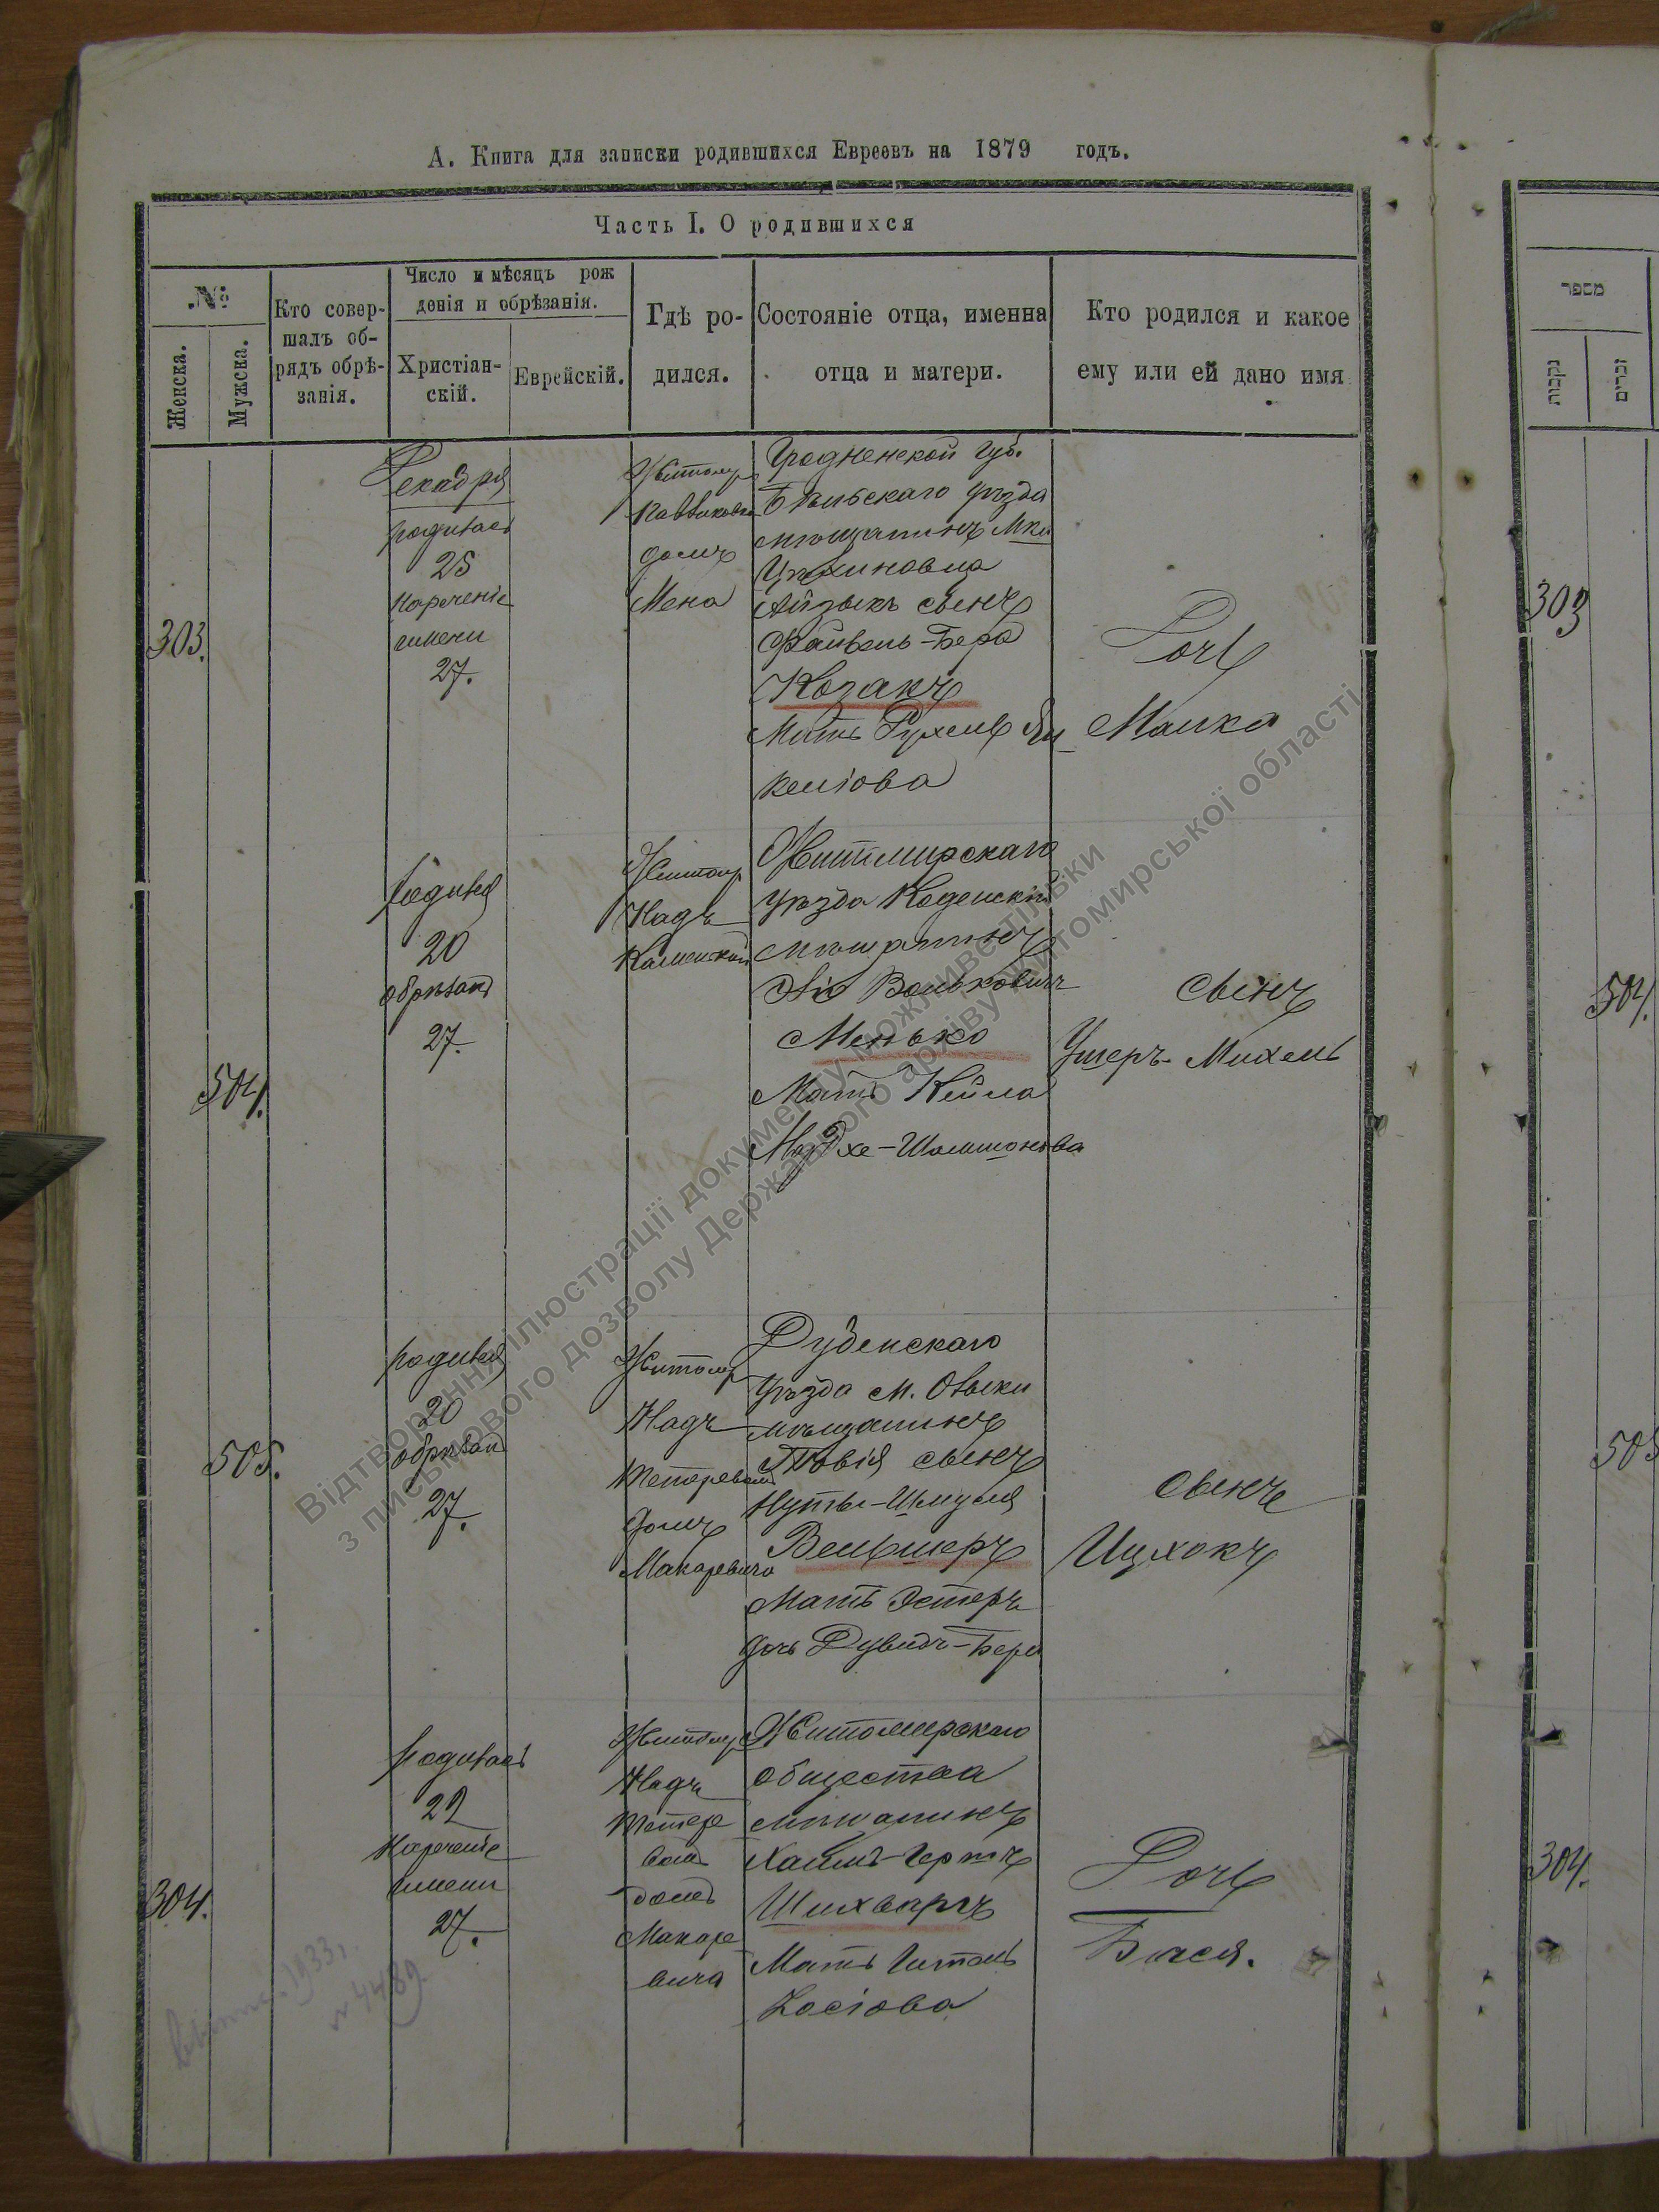 А. Книга для записки родившихся Евреевъ на 1879 годъ.
Часть I. О родившихся
№
Женска.
Мужска.
Кто совер-
шалъ об-
рядъ обрѣ-
занія.
Число и мѣсяцъ рож
денія и обрѣзанія.
Христіан-
скій.
Еврейскій.
Гдѣ ро-
дился.
Состояніе отца, именна
отца и матери.
Кто родился и какое
ему или ей дано имя
303.
Декабря
родилась
25
нареченіе
имени
27.
Житомир
домъ
Мена
Гродненской губ.
Бѣльскаго уѣзда
мѣщанинъ
Айзыкъ сынъ
Файвель-Бера
Козакъ
Мать Рухель Ян
келіова
Дочь
Малка
504.
родился
20
обрѣзанъ
27.
Житомир
Надъ
Каменкой
Житомирскаго
уѣзда Коденскій
мѣщанинъ
Волькович
Менько
Мать Кейла
Мордхе-Шлиомонова
сынъ
Ушеръ-Михель
505.
родился
20
обрѣзанъ
27.
Житомир
Надъ
Тетеревом
домъ
Макаревича
Дубенскаго
уѣзда м. Олыки
мѣщанинъ
Товія сынъ
Нуты-Шмуля
Вельшеръ
Мать Эстеръ
дочь Дувидъ-Бера
сынъ
Ицхокъ
304.
родилась
22
Нареченіе
имени
27.
Житомир
Надъ
Тетере
вом
домъ
Макаре
вича
Житомирскаго
общества
мѣщанинъ
Хаимъ-Гершъ
Шихваргъ
Мать Гитель
Іосіова
Дочь
Бася.
1933г.
№ 4489
מספר
נקבות
זכרים
303
504.
505
304.
Відтворення ілюстрації документу можливе тільки
з письмового дозволу Державного архіву Житомирської області